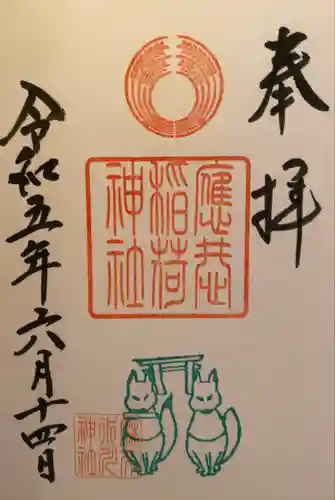 奉拝
應
稲荷
神社
神社
令和五年六月十四日